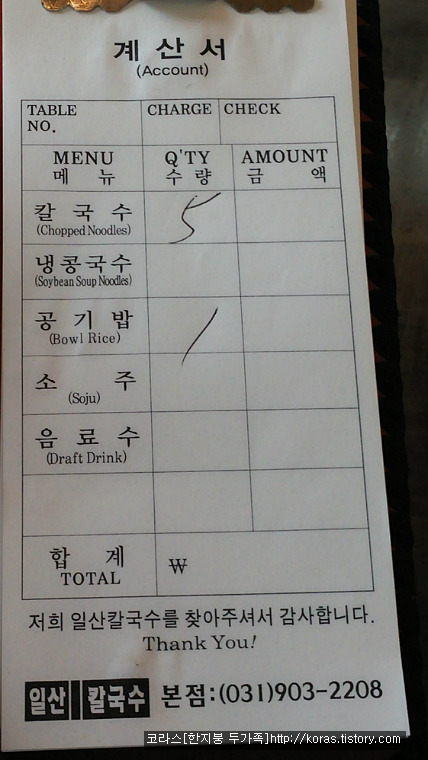 계산서
(Account)
TABLE NO.
CHARGE
CHECK
MENU 메뉴
Q'TY 수량
AMOUNT 금액
칼국수 5
(Chopped Noodles)
냉콩국수
(Soybean Soup Noodles)
공기밥 1
(Bowl Rice)
소주
(Soju)
음료수
(Draft Drink)
합계 TOTAL ₩
저희 일산칼국수를 찾아주셔서 감사합니다.
Thank You!
일산 칼국수 본점:(031)903-2208
코라스[한지붕 두가족]http://koras.tistory.com